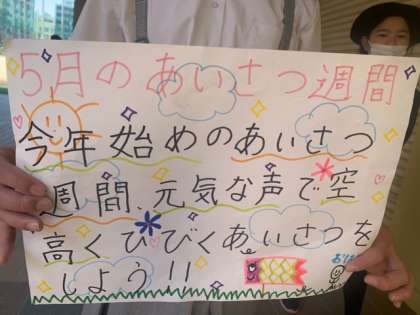 5月のあいさつ週間
今年始めのあいさつ
週間、元気な声で空
高くひびくあいさつを
しよう!!